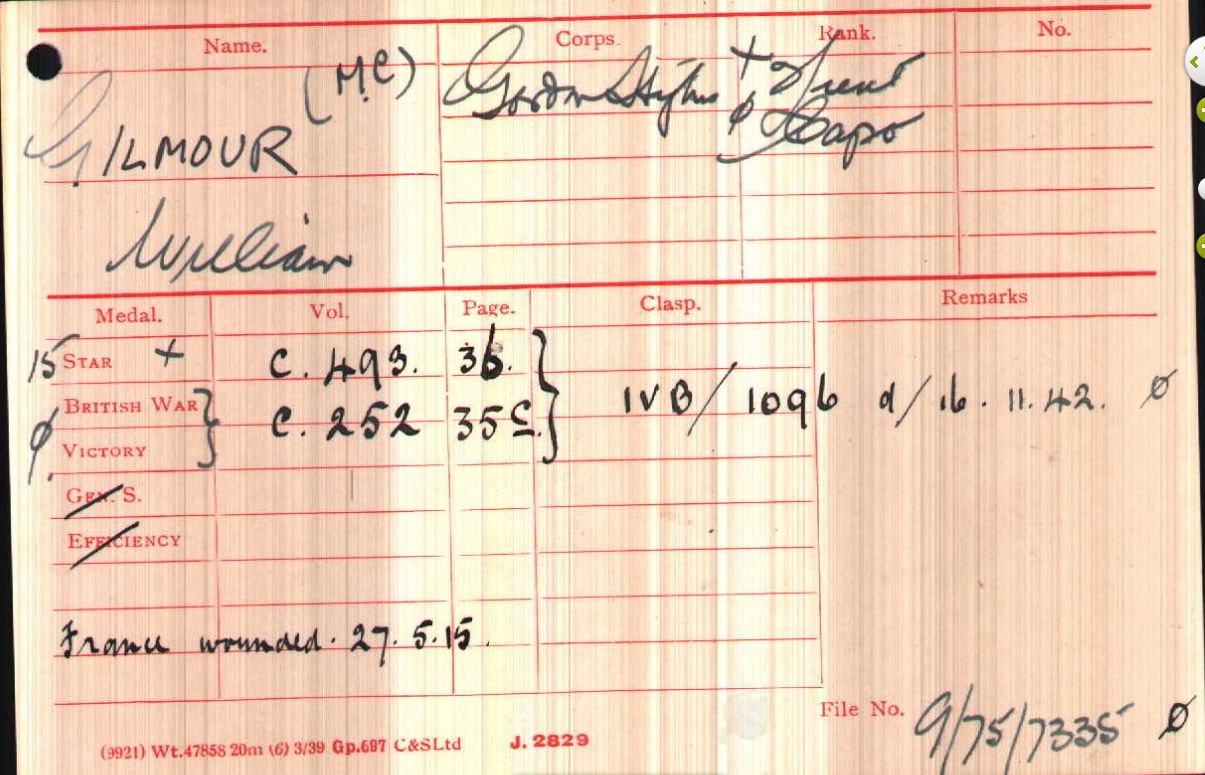 Name. Corps. Rank. No.
(M.C) Gordon Highrs + Lieut
GILMOUR ø Capt
William
Medal. Vol. Page. Clasp. Remarks
15 STAR + C. 493. 36.
BRITISH WAR C. 252 35C. IVB/1096 d/16.11.42. ø
ø VICTORY
GEN. S.
EFFICIENCY
France wounded. 27.5.15.
File No. 9/75/7335 ø
(9921) Wt.47858 20m (6) 3/39 Gp.697 C&SLtd J. 2829